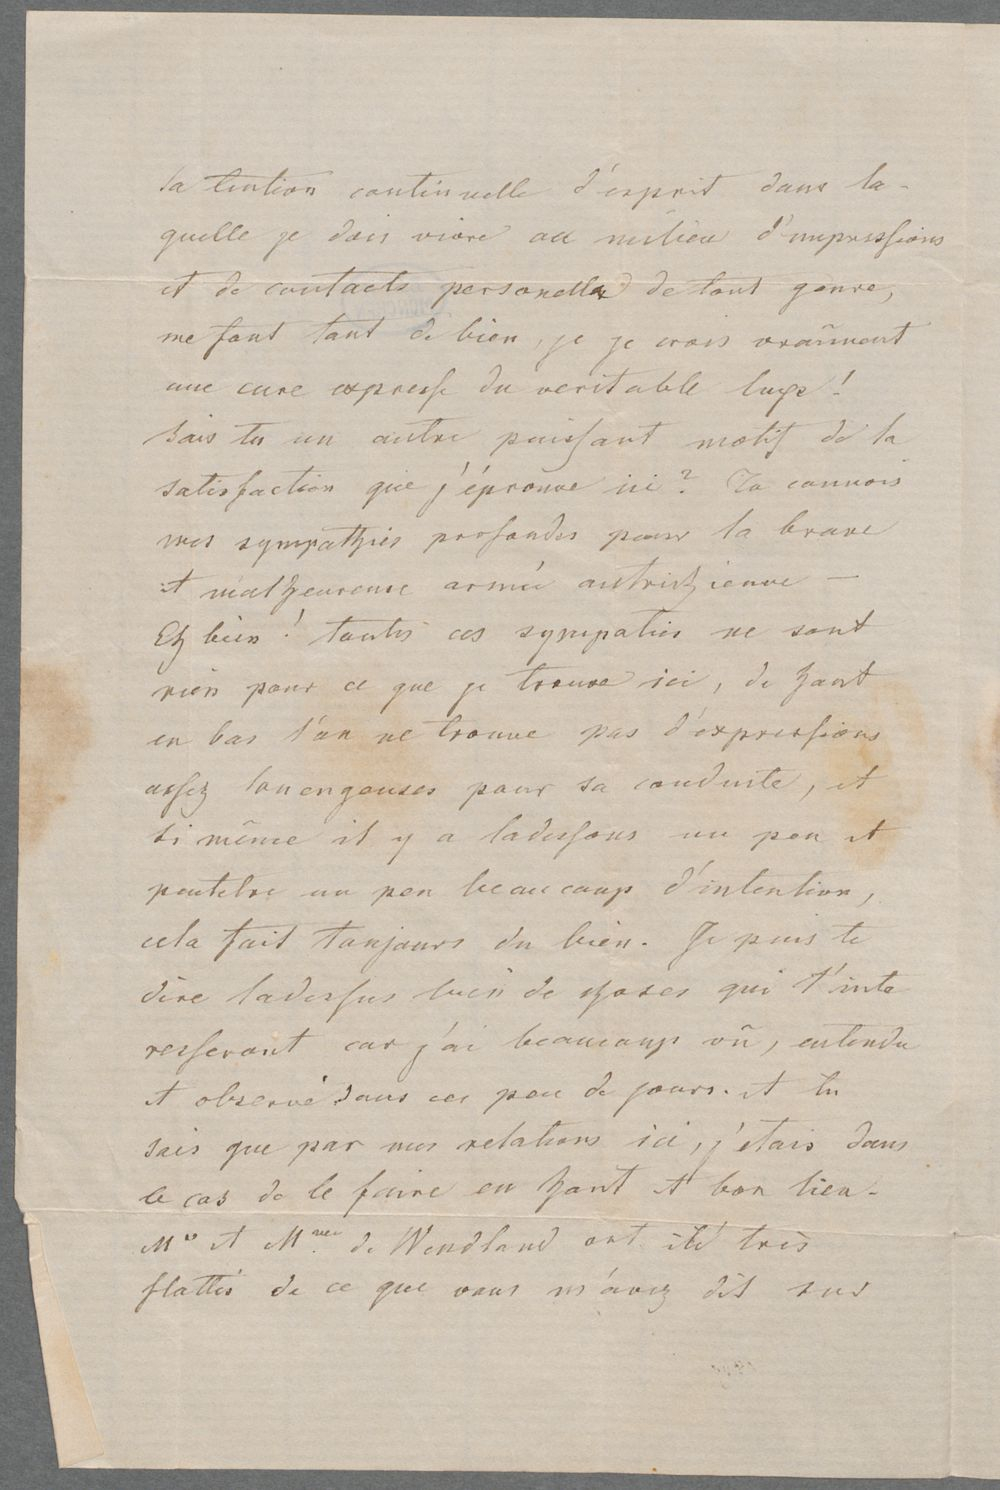 la tention continuelle d'esprit dans la-
quelle je dois vivre au milieu d'impressions
et de contacts personells de tout genre,
me font tant de bien, je je crois vraiment
une cure expresse du veritable luxe!
Sais tu un autre puissant motif de la
satisfaction que j'éprouve ici? Tu connois
mes sympathies profondes pour la brave
et malheureuse armée autrichienne —
Eh bien! toutes ces sympaties ne sont
rien pour ce que je trouve ici, de haut
en bas l'on ne trouve pas d'expressions
assez louengeuses pour sa conduite, et
si même il y a ladessous un peu et
peutetre un peu beaucoup d'intention,
cela fait toujours du bien. Je puis te
dire ladessus bien de choses qui t'inte
resseront car j'ai beaucoup vû, entendu
et observé dans ces peu de jours. et tu
sais que par mes relations ici, j'etais dans
le cas de le faire en haut et bon lieu.
Mr et Mme de Wendland ont été très
flattés de ce que vous m'avez dit sur